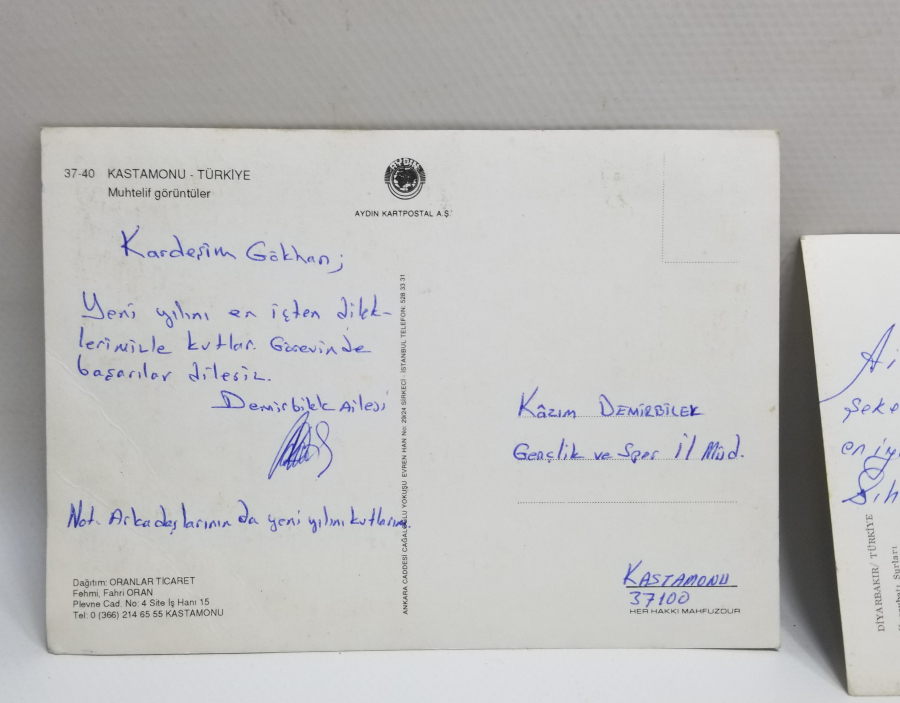 37-40 KASTAMONU - TÜRKİYE
Muhtelif görüntüler
AYDIN
AYDIN KARTPOSTAL A.Ş.
Kardeşim Gökhan;
Yeni yılını en içten dilek-
lerimizle kutlar. Görevinde
başarılar dileriz.
Demirbilek Ailesi
Not. Arkadaşlarının da yeni yılını kutlarım.
Dağıtım: ORANLAR TİCARET
Fehmi, Fahri ORAN
Plevne Cad. No: 4 Site İş Hanı 15
Tel: 0 (366) 214 65 55 KASTAMONU
ANKARA CADDESİ CAĞALOĞLU YOKUŞU EVREN HAN No: 29/24 SİRKECİ - İSTANBUL TELEFON: 528 33 31
Kâzım DEMİRBİLEK
Gençlik ve Spor İl Müd.
KASTAMONU
37100
HER HAKKI MAHFUZDUR
DİYARBAKIR/ TÜRKİYE
Surları